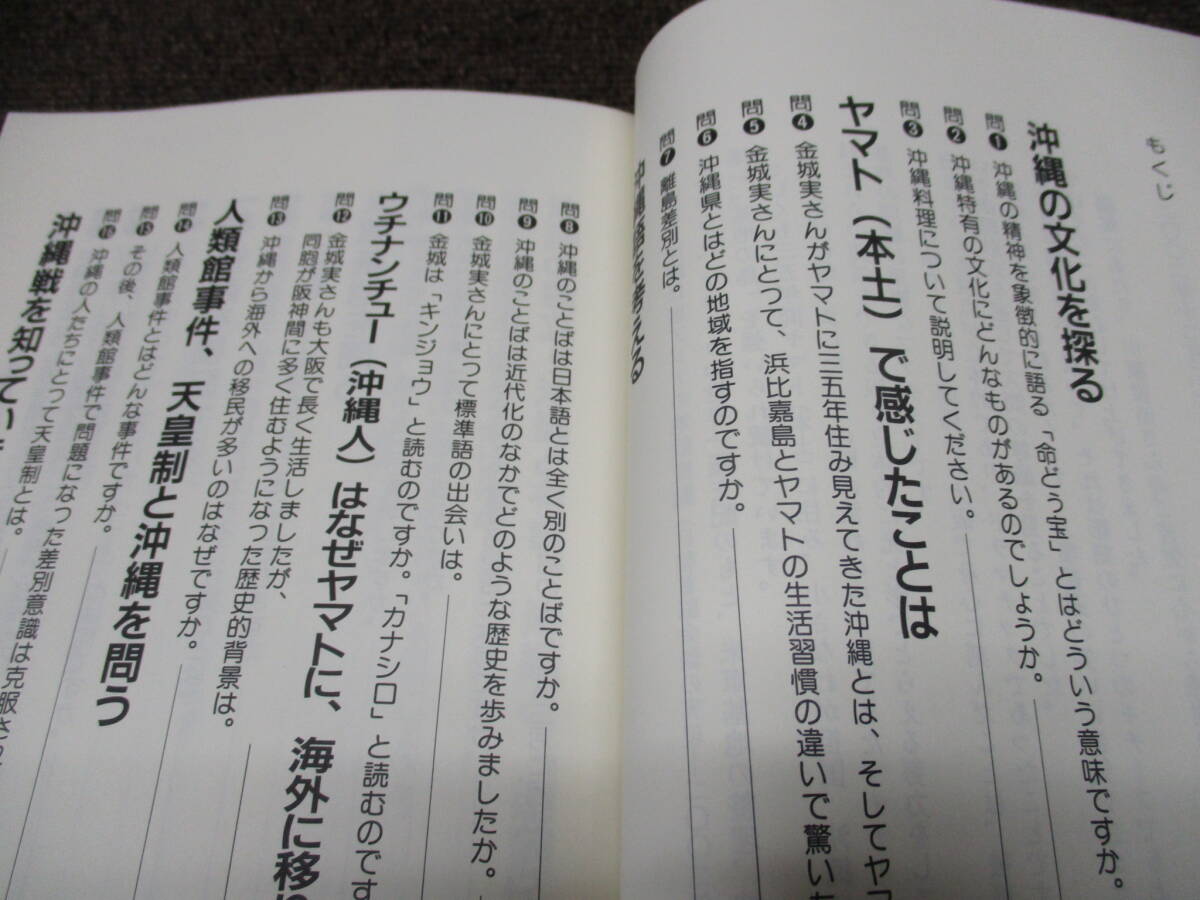 もくじ
沖縄の文化を探る
問❶ 沖縄の精神を象徴的に語る「命どう宝」とはどういう意味ですか。
問❷ 沖縄特有の文化にどんなものがあるのでしょうか。
問❸ 沖縄料理について説明してください。
ヤマト（本土）で感じたことは
問❹ 金城実さんがヤマトに三五年住み見えてきた沖縄とは、そしてヤマ
問❺ 金城実さんにとって、浜比嘉島とヤマトの生活習慣の違いで驚いた
問❻ 沖縄県とはどの地域を指すのですか。
問❼ 離島差別とは。
沖縄語を考える
問❽ 沖縄のことばは日本語とは全く別のことばですか。
問❾ 沖縄のことばは近代化のなかでどのような歴史を歩みましたか。
問❿ 金城実さんにとって標準語の出会いは。
問⓫ 金城は「キンジョウ」と読むのですか。「カナシロ」と読むのです
ウチナンチュー（沖縄人）はなぜヤマトに、海外に移り
問⓬ 金城実さんも大阪で長く生活しましたが、
同胞が阪神間に多く住むようになった歴史的背景は。
問⓭ 沖縄から海外への移民が多いのはなぜですか。
人類館事件、天皇制と沖縄を問う
問⓮ 人類館事件とはどんな事件ですか。
問⓯ その後、人類館事件で問題になった差別意識は克服さ
問⓰ 沖縄の人たちにとって天皇制とは。
沖縄戦を知ってい